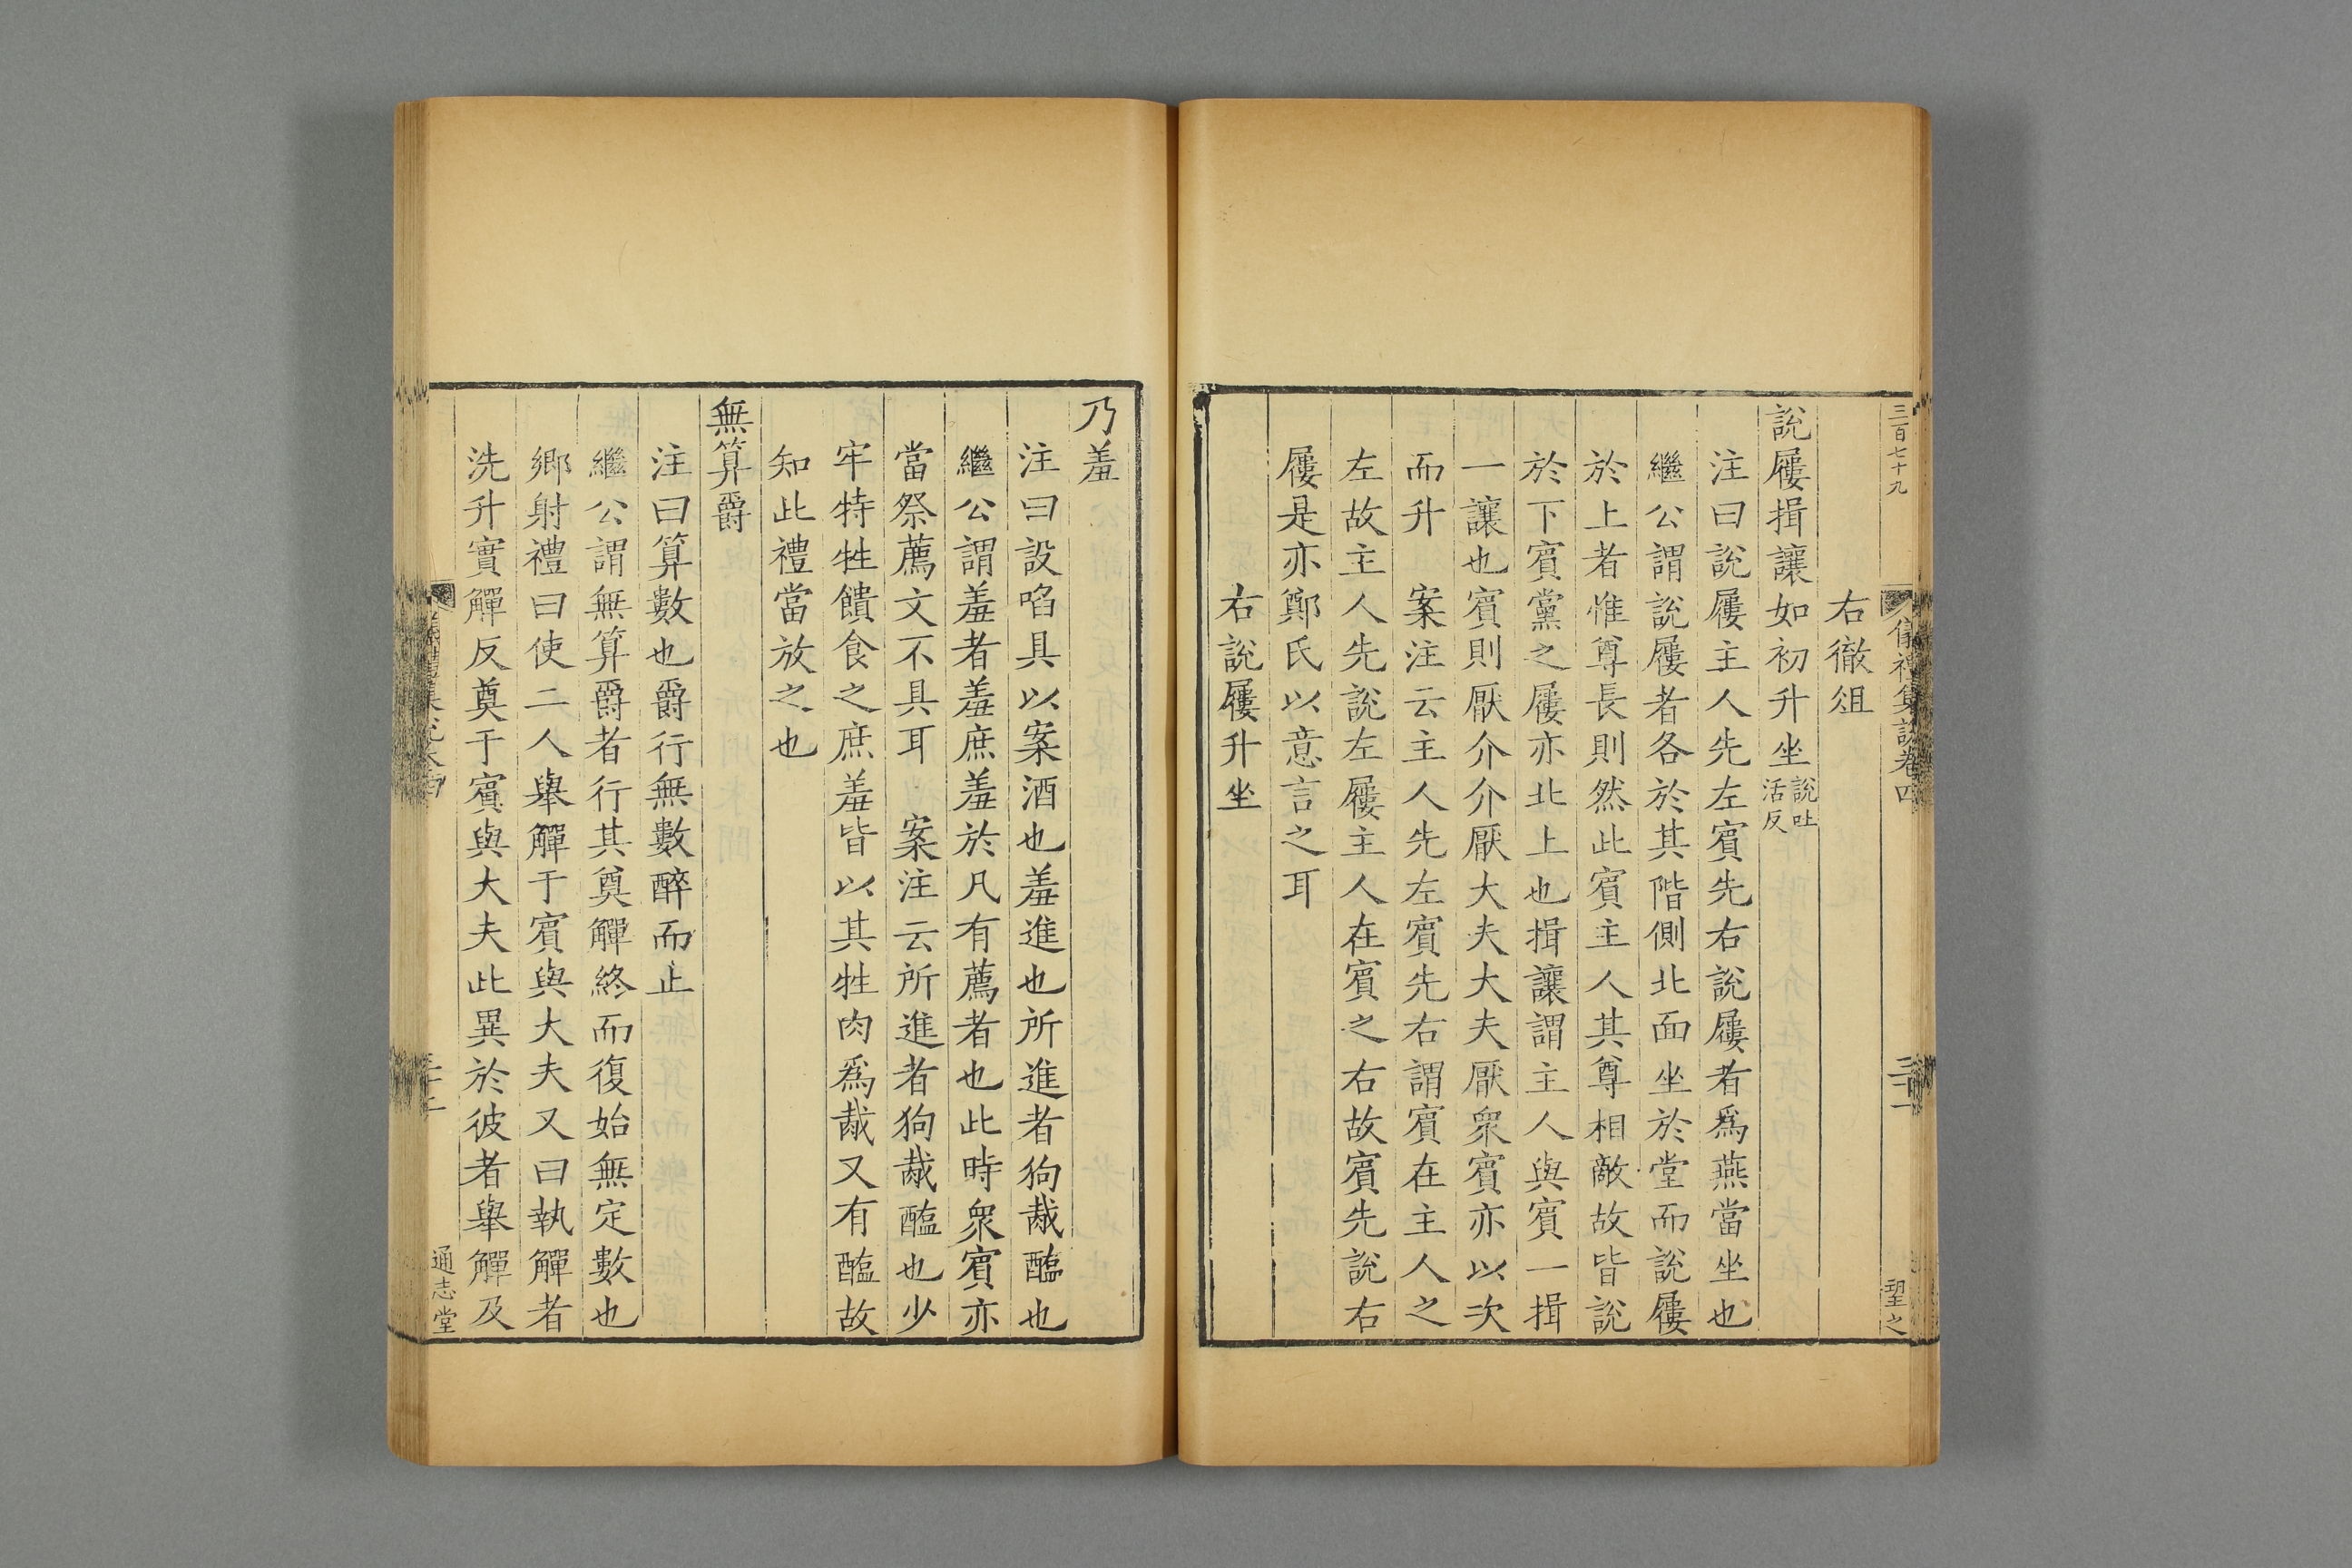 三百七十九
儀禮集說卷四
三十一
望之
右徹俎
說屨揖讓如初升坐說吐活反
注曰說屨主人先左賓先右說屨者爲燕當坐也
繼公謂說屨者各於其階側北面坐於堂而說屨
於上者惟尊長則然此賓主人其尊相敵故皆說
於下賓黨之屨亦北上也揖讓謂主人與賓一揖
一讓也賓則厭介介厭大夫大夫厭衆賓亦以次
而升　案注云主人先左賓先右謂賓在主人之
左故主人先說左屨主人在賓之右故賓先說右
屨是亦鄭氏以意言之耳
右說屨升坐
乃羞
注曰設啗具以案酒也羞進也所進者狗胾醢也
繼公謂羞者羞庶羞於凡有薦者也此時衆賓亦
當祭薦文不具耳　案注云所進者狗胾醢也少
牢特牲饋食之庶羞皆以其牲肉爲胾又有醢故
知此禮當放之也
無算爵
注曰算數也爵行無數醉而止
繼公謂無算爵者行其奠觶終而復始無定數也
鄉射禮曰使二人舉觶于賓與大夫又曰執觶者
洗升實觶反奠于賓與大夫此異於彼者舉觶及
通志堂